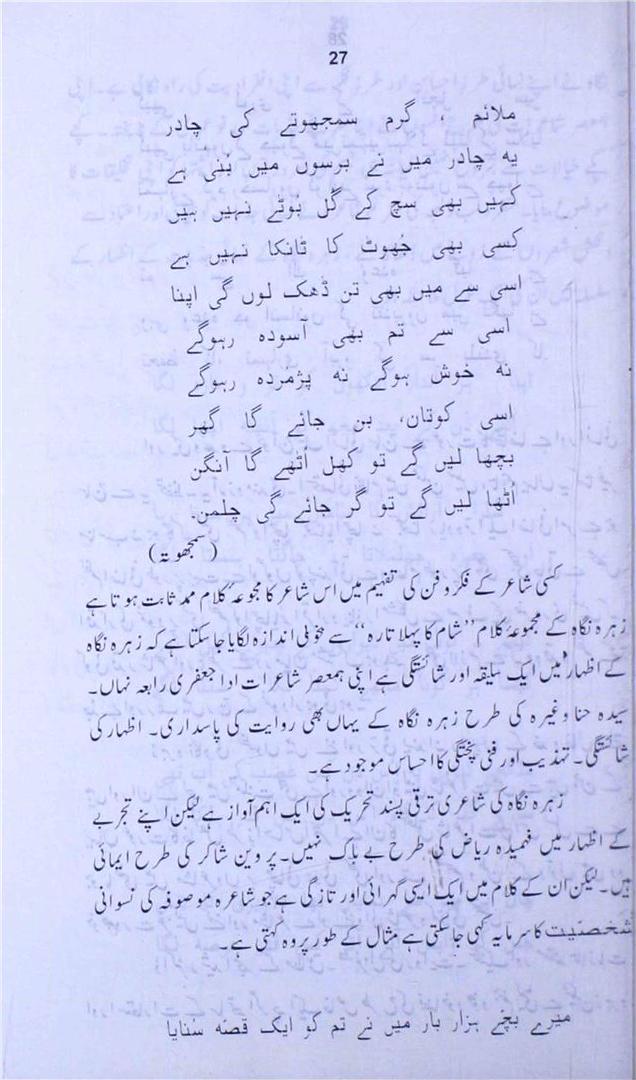 27
ملائم ، گرم سمجھوتے کی چادر
یہ چادر میں نے برسوں میں بُنی ہے
کہیں بھی سچ کے گل بوٹے نہیں ہیں
کسی بھی جُھوٹ کا ٹانکا نہیں ہے
اسی سے میں بھی تن ڈھک لوں گی اپنا
اسی سے تم بھی آسودہ رہوگے
نہ خوش ہوگے نہ پژمردہ رہوگے
اسی کوتان، بن جائے گا گھر
بچھا لیں گے تو کھل اُٹھے گا آنگن
اُٹھا لیں گے تو گر جائے گی چلمن۔
(سمجھوتہ)
کسی شاعر کے فکر و فن کی تفہیم میں اس شاعر کا مجموعۂ کلام ممد ثابت ہوتا ہے
زہرہ نگاہ کے مجموعۂ کلام ’’شام کا پہلا تارہ‘‘ سے بخوبی اندازہ لگایا جا سکتا ہے کہ زہرہ نگاہ
کے اظہار میں ایک سلیقہ اور شائستگی ہے اپنی ہمعصر شاعرات ادا جعفری رابعہ نہاں۔
سیدہ حنا وغیرہ کی طرح زہرہ نگاہ کے یہاں بھی روایت کی پاسداری۔ اظہار کی
شائستگی۔ تہذیب اور فنی پختگی کا احساس موجود ہے۔
زہرہ نگاہ کی شاعری ترقی پسند تحریک کی ایک اہم آواز ہے لیکن اپنے تجربے
کے اظہار میں فہمیدہ ریاض کی طرح بے باک نہیں۔ پروین شاکر کی طرح ایمائی
ہیں۔ لیکن ان کے کلام میں ایک ایسی گہرائی اور تازگی ہے جو شاعرہ موصوفہ کی نسوانی
شخصیت کا سرمایہ کہی جا سکتی ہے مثال کے طور پر وہ کہتی ہے۔
میرے بچّے ہزار بار میں نے تم کو ایک قصّہ سُنایا